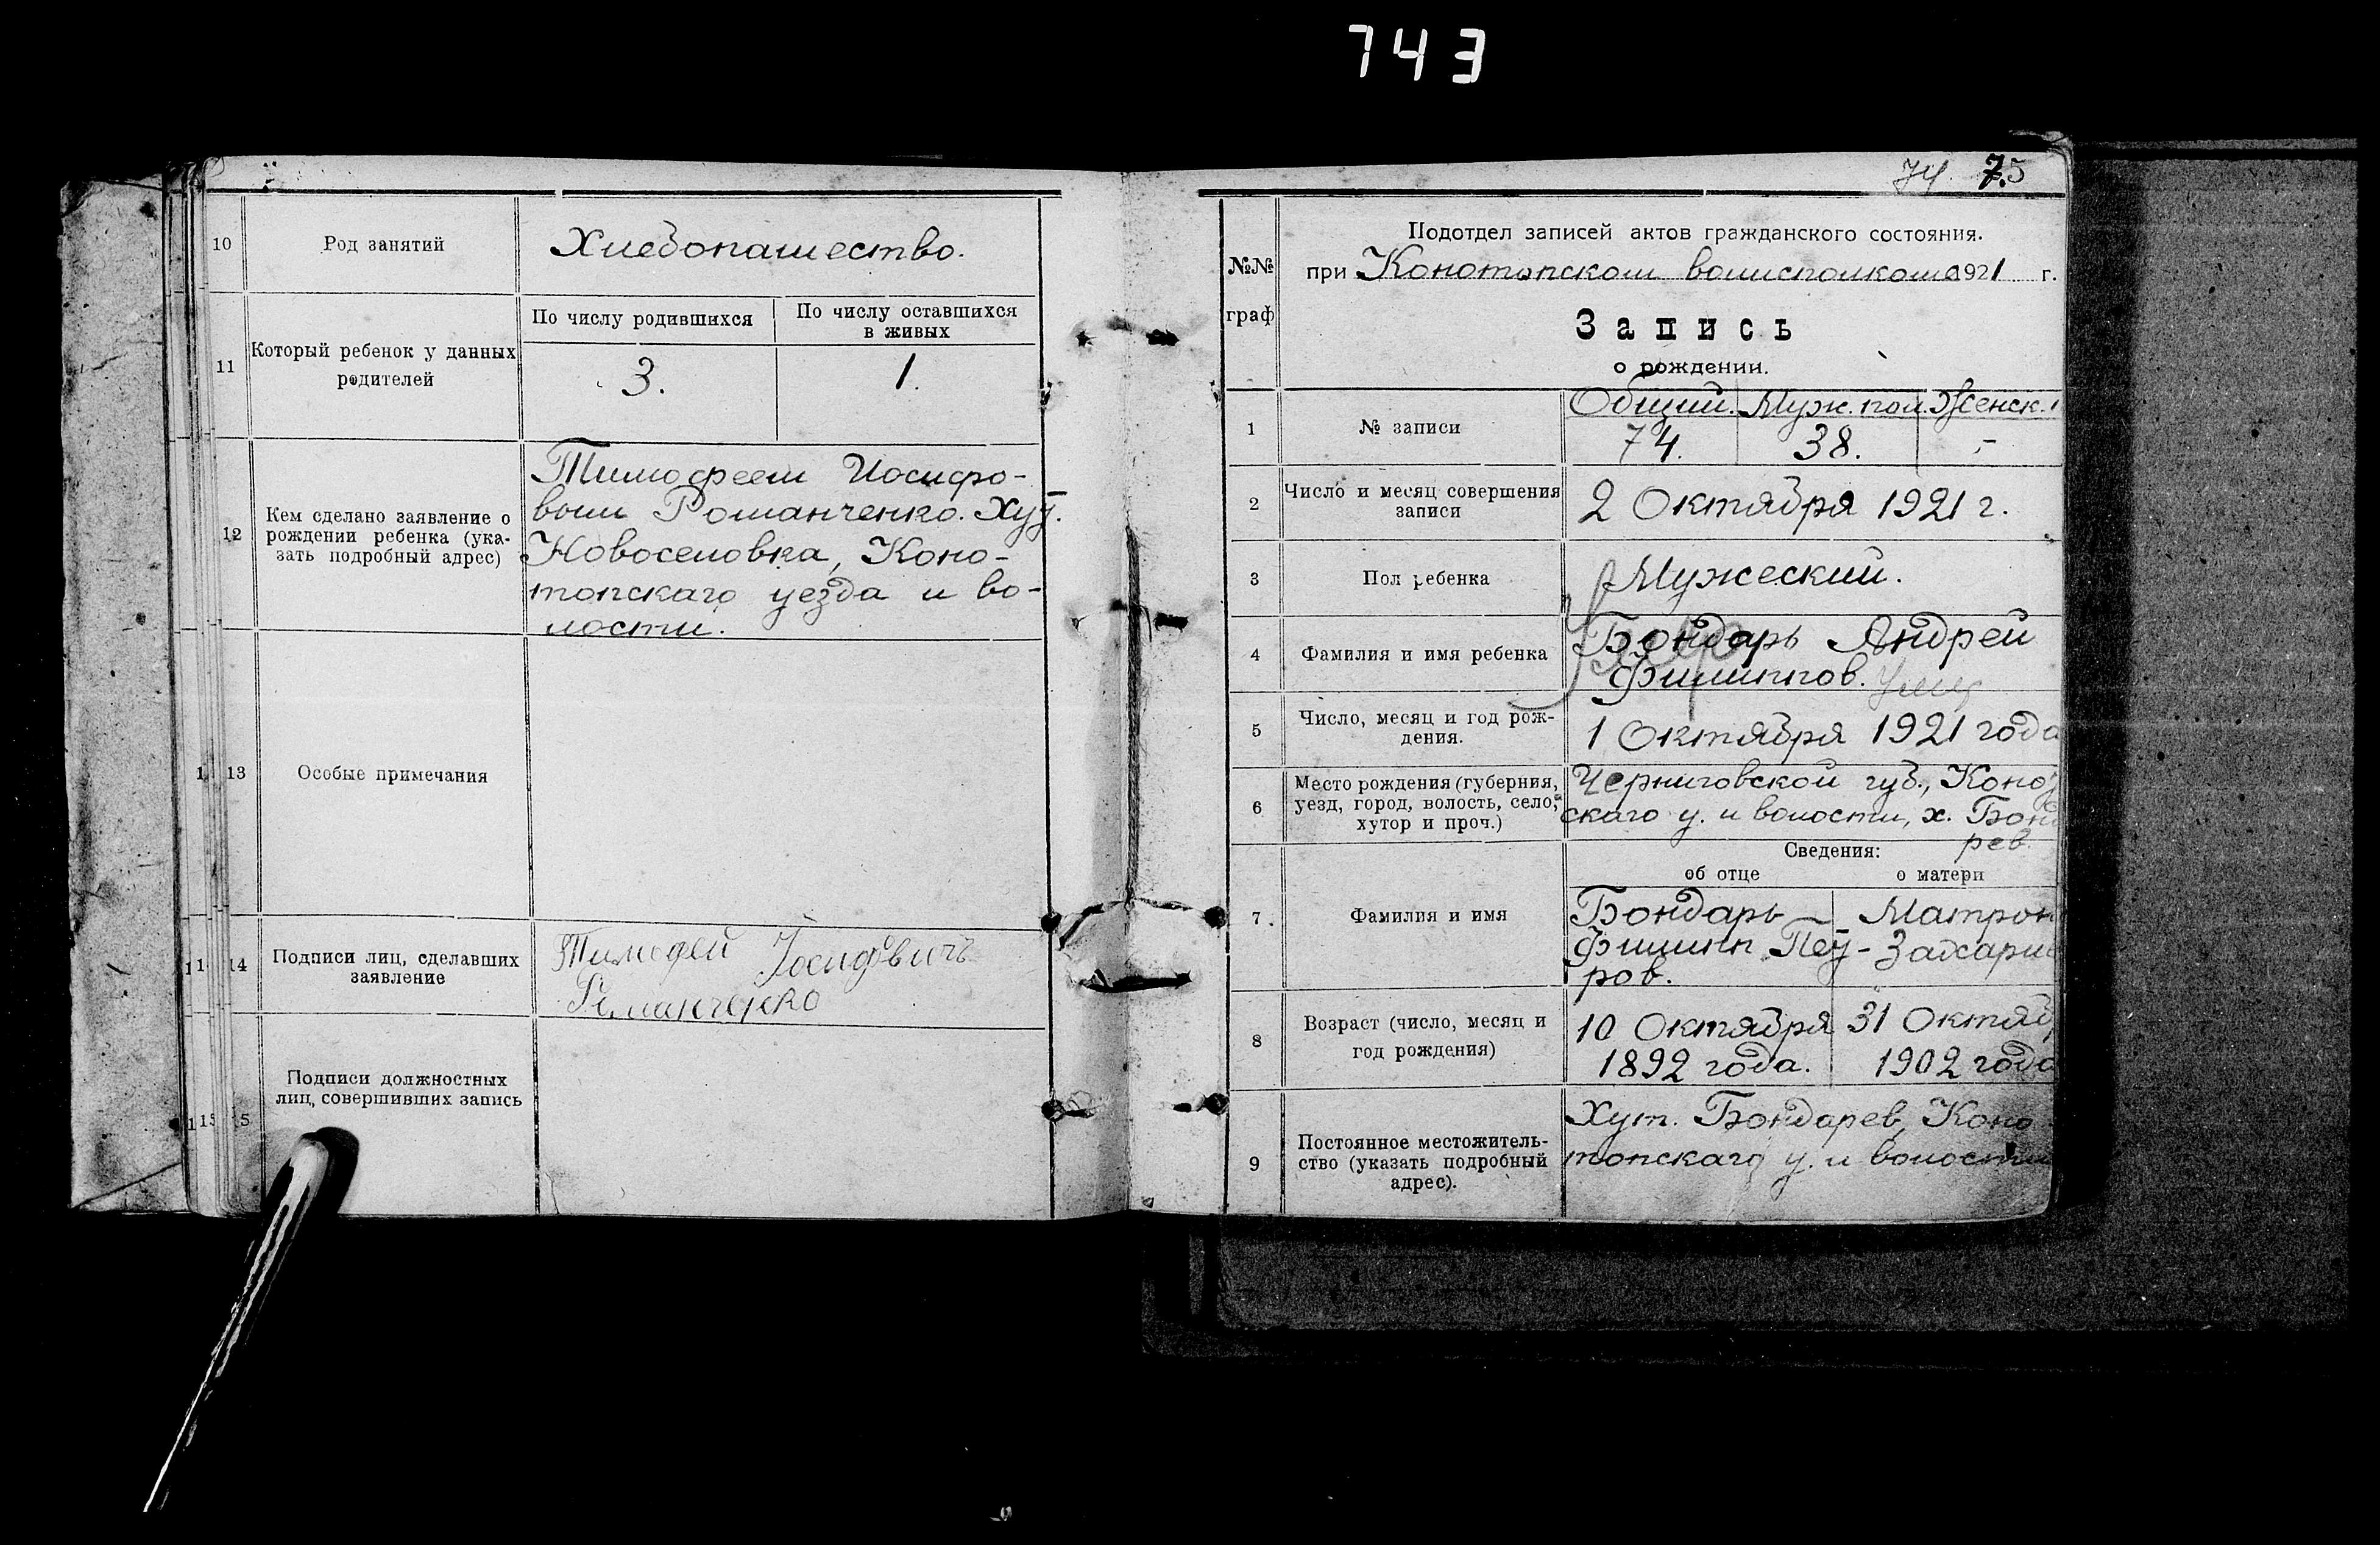 743
10
Род занятий
Хлебопашество.
11
Который ребенок у данных
родителей
По числу родившихся
По числу оставшихся
в живых
3.
1.
12
Кем сделано заявление о
рождении ребенка (ука-
зать подробный адрес)
Тимофеем Иосифо-
вым Романченко. Хут.
Новоселовка, Коно-
топскаго уезда и во-
лости.
13
Особые примечания
14
Подписи лиц, сделавших
заявление
Тимофей Іосифовичъ
Романченко
15
Подписи должностных
лиц, совершивших запись
74. 75
№№
граф
Подотдел записей актов гражданского состояния.
при Конотопском волисполкоме 1921 г.
Запись
о рождении.
1
№ записи
Общий. Муж. пол. Женск.
74. 38. -
2
Число и месяц совершения
записи
2 Октября 1921 г.
3
Пол ребенка
Мужеский.
4
Фамилия и имя ребенка
Бондарь Андрей
Филиппов.
5
Число, месяц и год рож-
дения.
1 Октября 1921 года
6
Место рождения (губерния,
уезд, город, волость, село,
хутор и проч.)
Черниговской губ., Коно
скаго у. и волости, х. Бонд
рев.
Сведения:
об отце
о матери
7.
Фамилия и имя
Бондарь
Филипп Пет-
ров.
Матрон
Захарие
8
Возраст (число, месяц и
год рождения)
10 Октября
1892 года.
31 Октяб
1902 года
9
Постоянное местожитель-
ство (указать подробный
адрес).
Хут. Бондарев, Коно
топскаго у. и волости